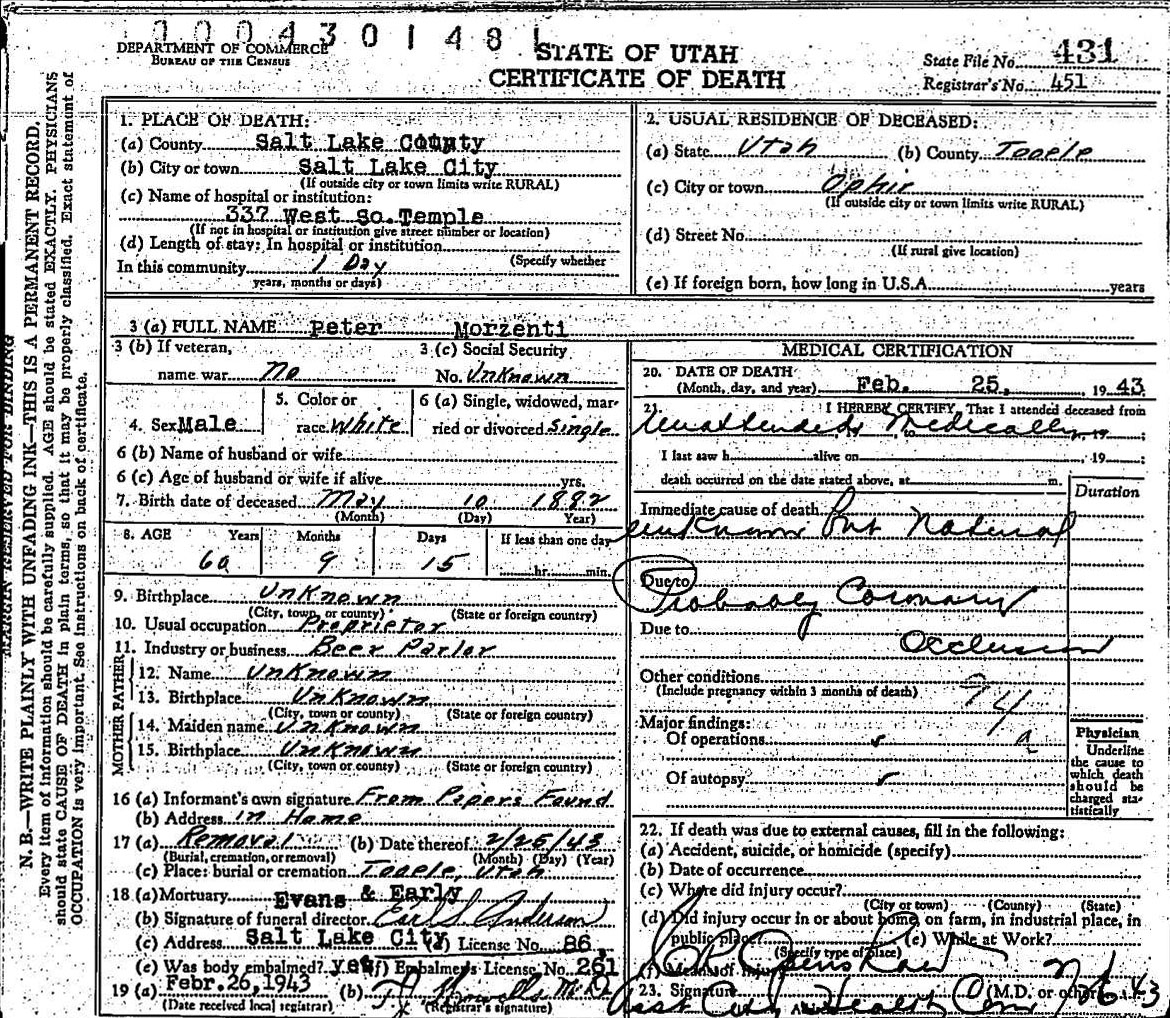 0004301481
DEPARTMENT OF COMMERCE
BUREAU OF THE CENSUS
STATE OF UTAH
CERTIFICATE OF DEATH
State File No. 431
Registrar's No. 451
MARGIN RESERVED FOR BINDING
N. B.—WRITE PLAINLY WITH UNFADING INK—THIS IS A PERMANENT RECORD.
Every item of information should be carefully supplied. AGE should be stated EXACTLY. PHYSICIANS
should state CAUSE OF DEATH in plain terms, so that it may be properly classified. Exact statement of
OCCUPATION is very important. See instructions on back of certificate.
1. PLACE OF DEATH:
(a) County Salt Lake County
(b) City or town Salt Lake City
(If outside city or town limits write RURAL)
(c) Name of hospital or institution:
337 West So. Temple
(If not in hospital or institution give street number or location)
(d) Length of stay: In hospital or institution
(Specify whether
In this community 1 Day
years, months or days)
2. USUAL RESIDENCE OF DECEASED:
(a) State Utah (b) County Tooele
(c) City or town Ophir
(If outside city or town limits write RURAL)
(d) Street No.
(If rural give location)
(e) If foreign born, how long in U.S.A. years
3 (a) FULL NAME Peter Morzenti
3 (b) If veteran, 3 (c) Social Security
name war no No. Unknown
4. Sex Male 5. Color or race White 6 (a) Single, widowed, married or divorced Single
6 (b) Name of husband or wife
6 (c) Age of husband or wife if alive yrs.
7. Birth date of deceased May 10 1882
(Month) (Day) Year)
8. AGE Years Months Days If less than one day
60 9 15 hr. min.
9. Birthplace Unknown
(City, town, or county) (State or foreign country)
10. Usual occupation Proprietor
11. Industry or business Beer Parlor
FATHER 12. Name Unknown
13. Birthplace Unknown
(City, town or county) (State or foreign country)
MOTHER 14. Maiden name Unknown
15. Birthplace Unknown
(City, town or county) (State or foreign country)
16 (a) Informant's own signature From Papers Found
(b) Address in Home
17 (a) Removal (b) Date thereof 2/25/43
(Burial, cremation, or removal) (Month) (Day) (Year)
(c) Place: burial or cremation Tooele, Utah
18 (a) Mortuary Evans & Early
(b) Signature of funeral director Earl S. Anderson
(c) Address Salt Lake City (d) License No. 86
(e) Was body embalmed? yes (f) Embalmer's License No. 261
19 (a) Febr. 26, 1943 (b)
(Date received local registrar) (Registrar's signature)
MEDICAL CERTIFICATION
20. DATE OF DEATH
(Month, day, and year) Feb. 25, 1943
21. I HEREBY CERTIFY, That I attended deceased from
Unattended Medically, 19 ;
I last saw h alive on , 19 ;
death occurred on the date stated above, at m.
Duration
Immediate cause of death
unknown but Natural
Due to
Probably Coronary
Due to
Occlusion
Other conditions
(Include pregnancy within 3 months of death)
94 a
Major findings:
Of operations
Of autopsy
Physician
Underline
the cause to
which death
should be
charged sta-
tistically
22. If death was due to external causes, fill in the following:
(a) Accident, suicide, or homicide (specify)
(b) Date of occurrence
(c) Where did injury occur?
(City or town) (County) (State)
(d) Did injury occur in or about home, on farm, in industrial place, in
public place? (e) While at Work?
(Specify type of place)
(f) Means of injury
23. Signature (M.D. or other)
Asst City Health Com